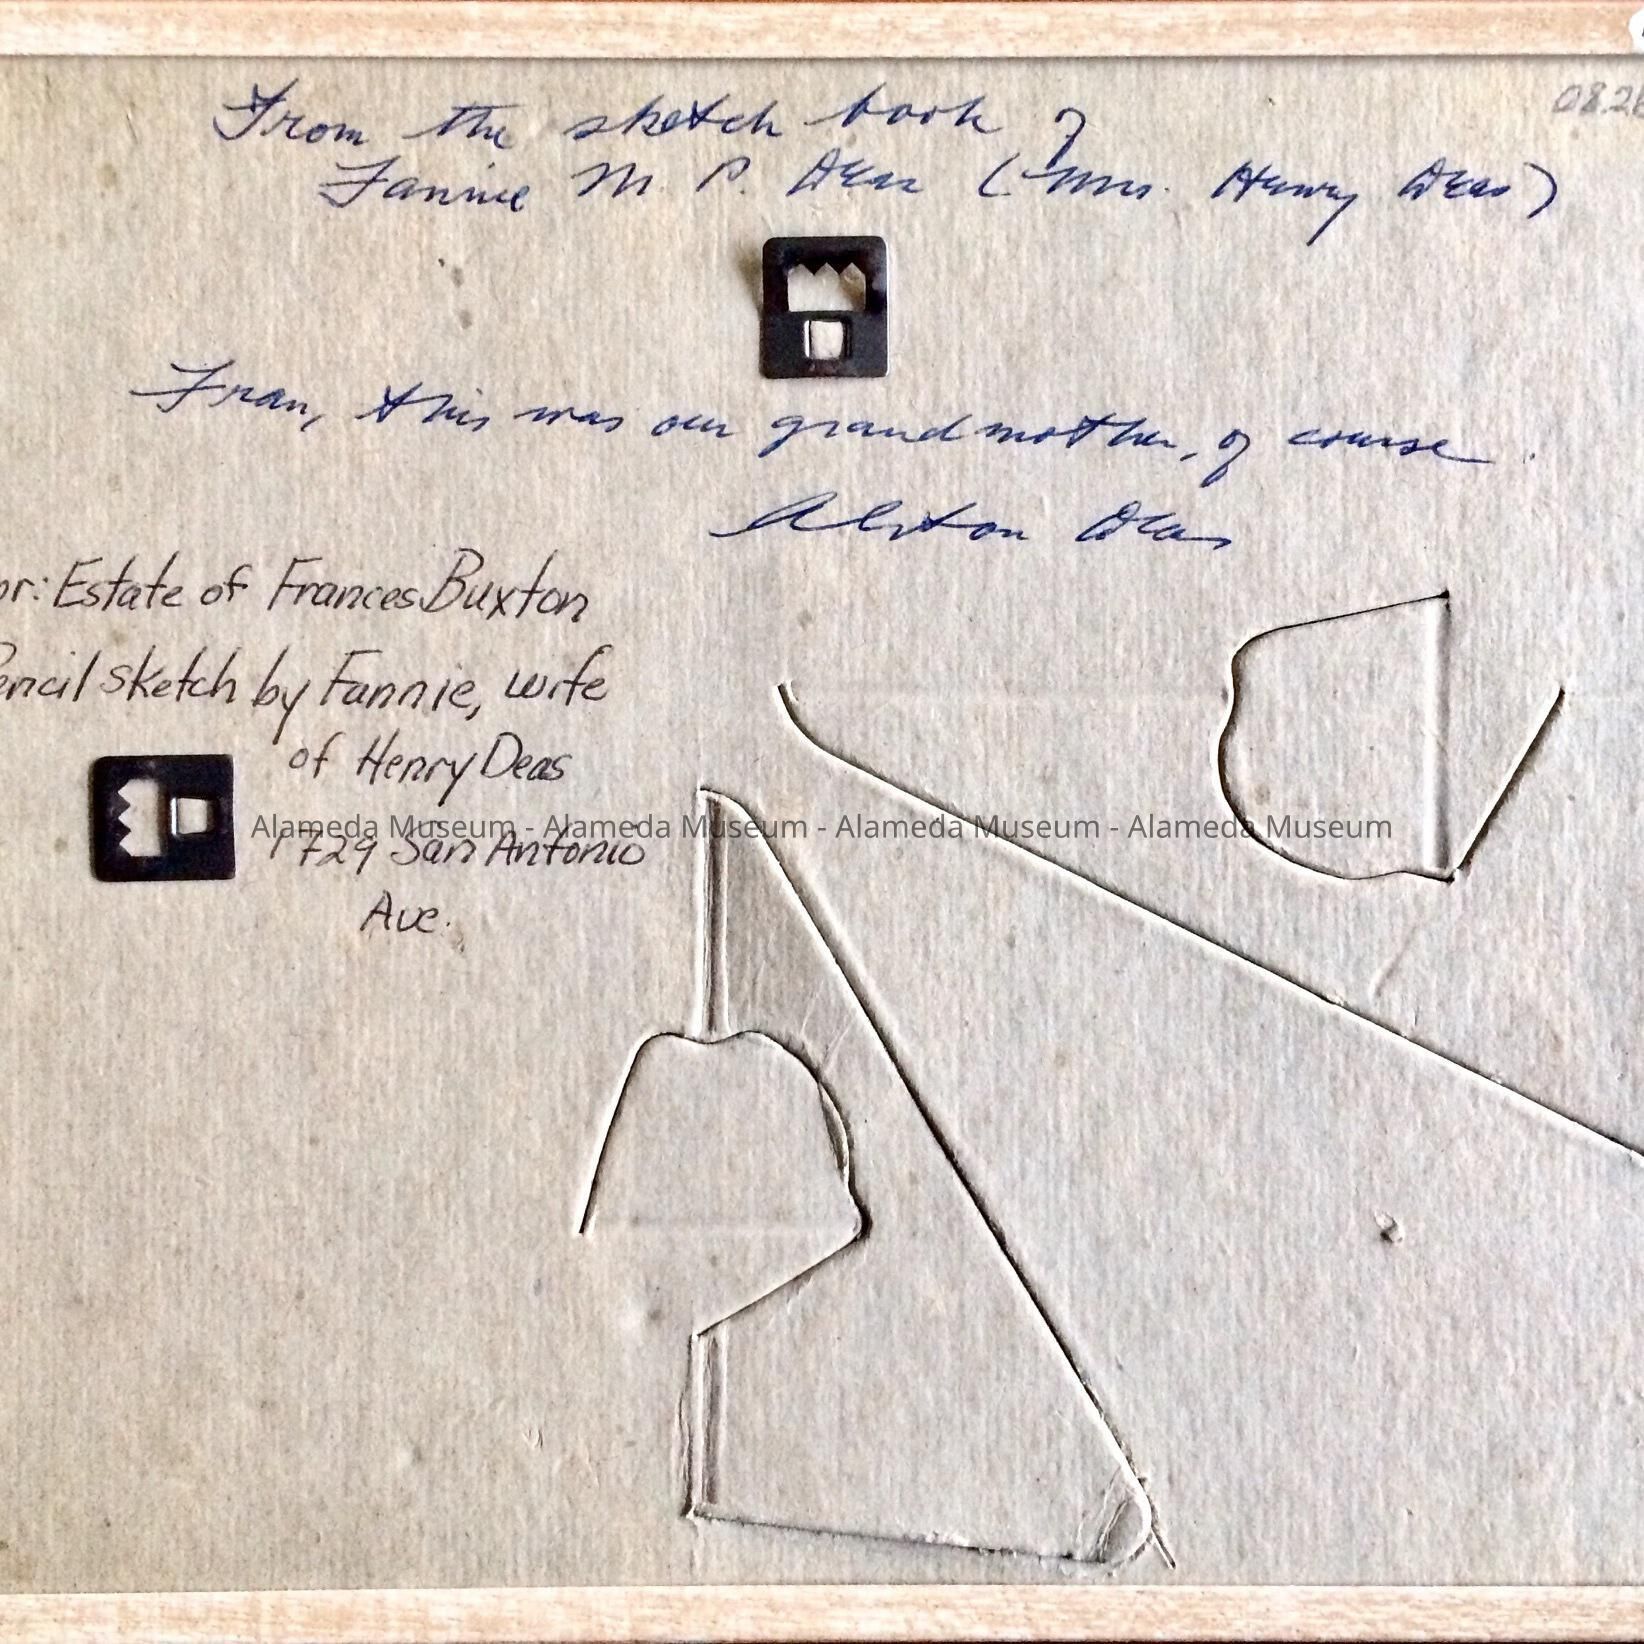 08.26
From the sketch book of
Fannie M. P. Deas (Mrs. Henry Deas)
Fran, this was our grandmother, of course.
Alston Deas
or: Estate of Frances Buxton
Pencil sketch by Fannie, wife
of Henry Deas
Alameda Museum - Alameda Museum - Alameda Museum - Alameda Museum
1729 San Antonio
Ave.